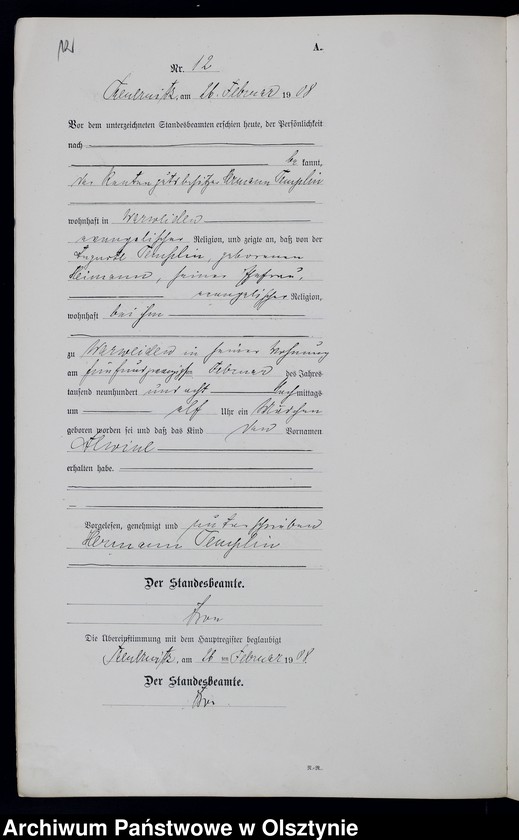 121
A.
Nr. 12
am 26. Februar 1908
Vor dem unterzeichneten Standesbeamten erschien heute, der Persönlichkeit
nach
be kannt,
der Rentengutsbesitzer Hermann Templin
wohnhaft in Warweiden
evangelischer Religion, und zeigte an, daß von der
Auguste Templin, geborenen
Heimann, seiner Ehefrau,
evangelischer Religion,
wohnhaft bei ihm
zu Warweiden in seiner Wohnung
am fünfundzwanzigsten Februar des Jahres
tausend neunhundert und acht Nachmittags
um elf Uhr ein Mädchen
geboren worden sei und daß das Kind den Vornamen
Alwine
erhalten habe.
Vorgelesen, genehmigt und unterschrieben
Hermann Templin
Der Standesbeamte.
Die Übereinstimmung mit dem Hauptregister beglaubigt
am 26 ten Februar 1908.
Der Standesbeamte.
R.-R.
Archiwum Państwowe w Olsztynie